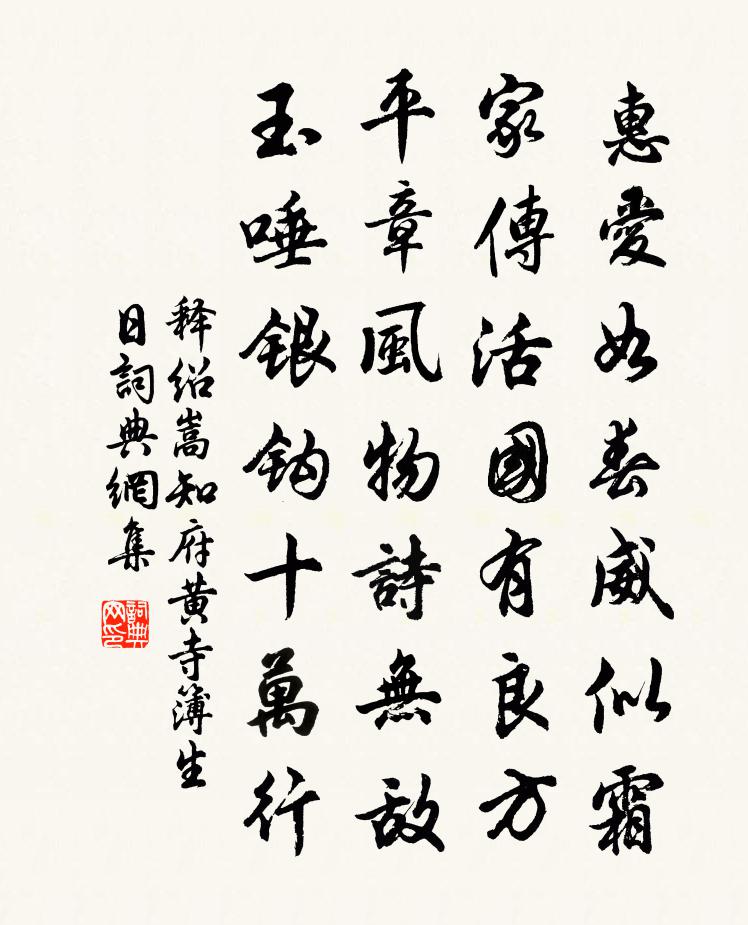 惠愛如春威似霜
家傳活國有良方
平章風物詩無敵
玉唾銀鈎十萬行
释绍嵩知府黃寺簿生
日詞典網集
詞典网印